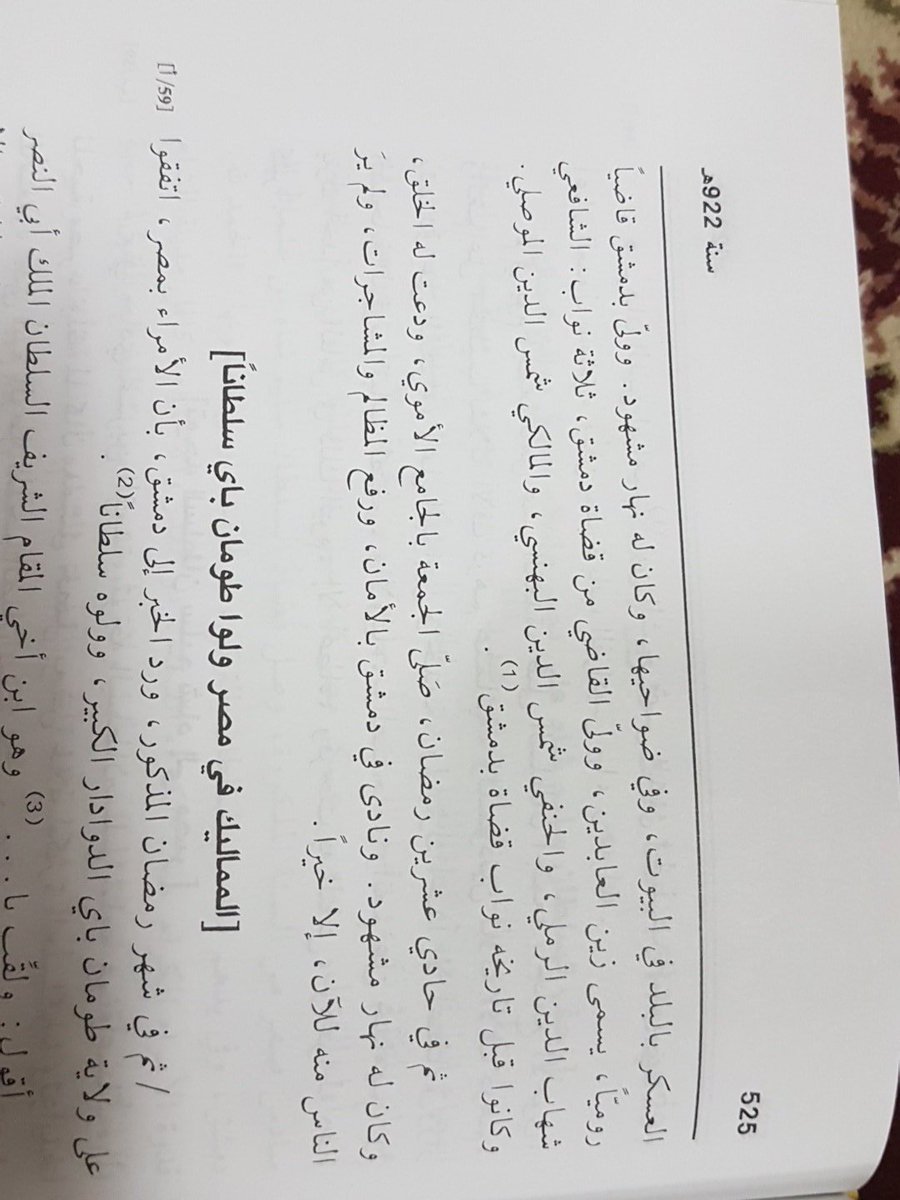 سنة 922هـ 525
العسكر بالبلد في البيوت، وفي ضواحيها، وكان له نهار مشهود. وولّى بدمشق قاضياً
روميّاً، يسمى زين العابدين، وولّى القاضي من قضاة دمشق، ثلاثة نواب: الشافعي
شهاب الدين الرملي، والحنفي شمس الدين البهنسي، والمالكي شمس الدين الموصلي.
وكانوا قبل تاريخه نواب قضاة بدمشق(1).
ثم في حادي عشرين رمضان، صَلّى الجمعة بالجامع الأموي، ودعت له الخلق،
وكان له نهار مشهود. ونادى في دمشق بالأمان، ورفع المظالم والمشاجرات، ولم يرَ
الناس منه للآن، إلا خيراً.
[المماليك في مصر ولوا طومان باي سلطاناً]
/ ثم في شهر رمضان المذكور، ورد الخبر إلى دمشق، بأن الأمراء بمصر، اتفقوا [1/59أ]
على ولاية طومان باي الدوادار الكبير، وولوه سلطاناً(2).
أقول: ولقّب با...(3) وهو ابن أخي المقام الشريف السلطان الملك أبي النصر